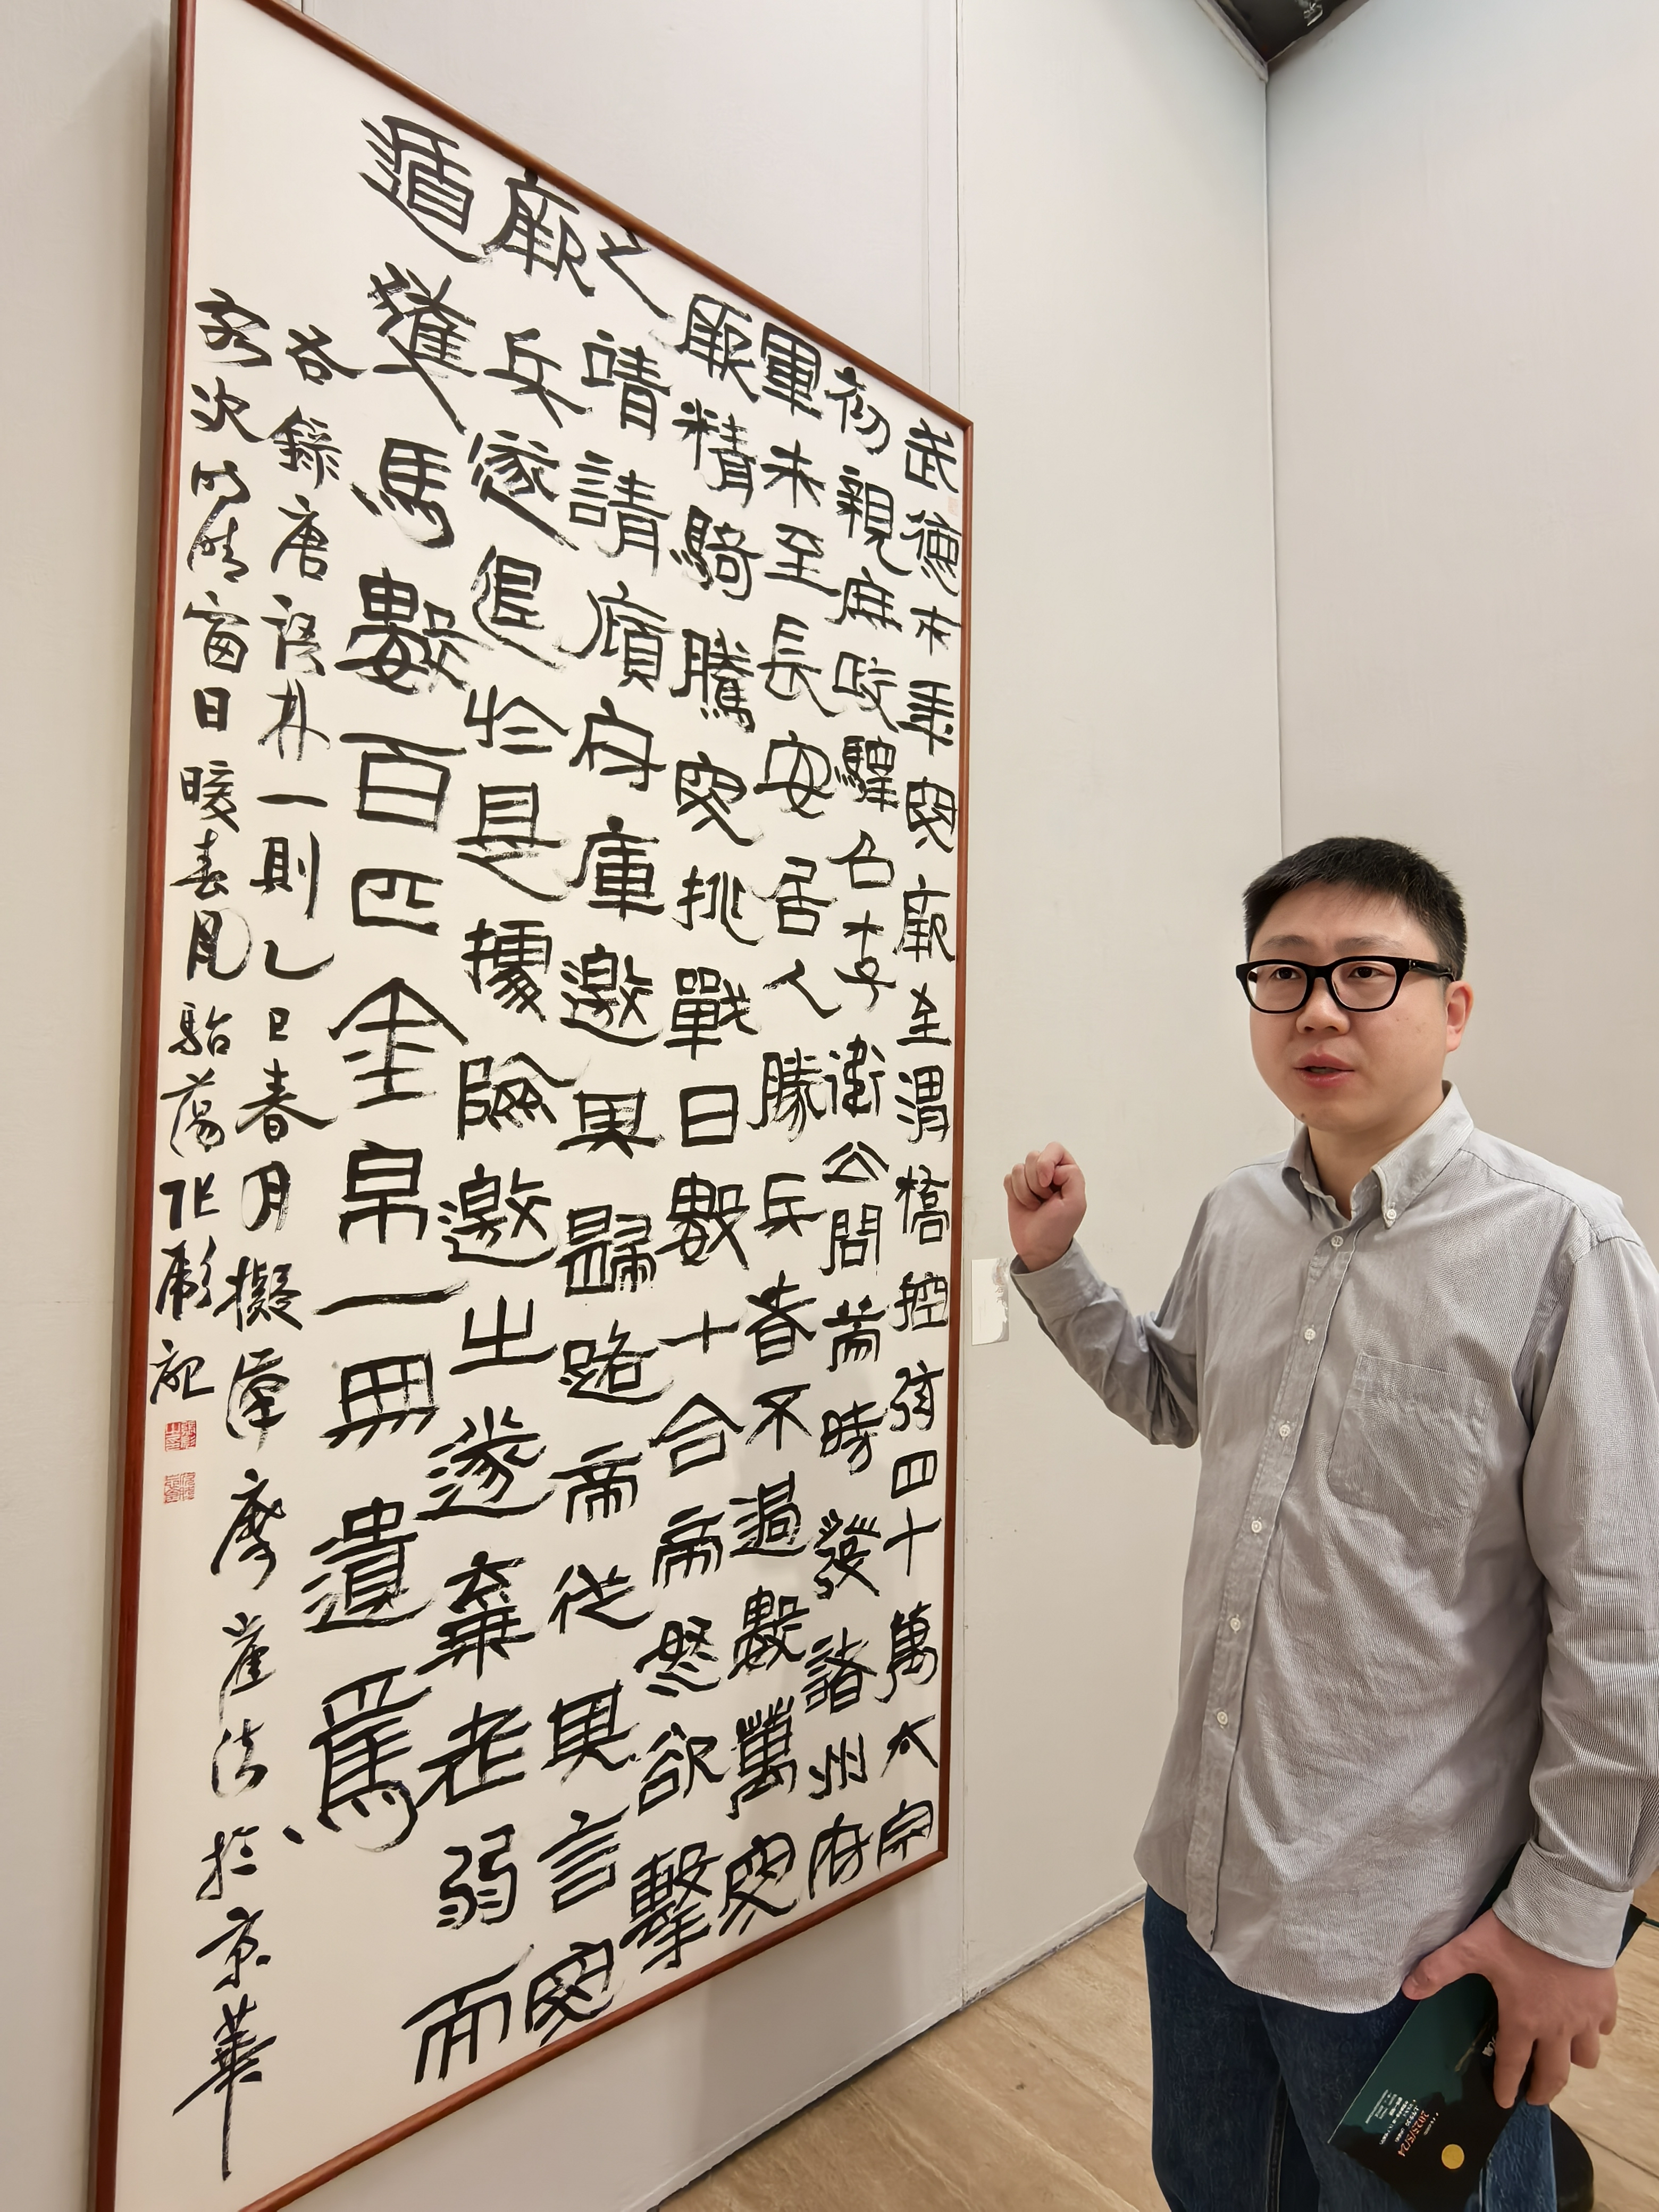 武德末年突厥至渭橋控弦四十萬太宗
初親庶政驛召李衛公問策時發諸州府
軍未至長安居人勝兵者不過數萬突
厥精騎騰突挑戰日數十合帝怒欲擊
之靖請傾府庫邀其歸路帝從其言突
厥兵遂退於是據險邀之遂棄老弱而
遁獲馬數百匹金帛一無遺焉
右錄唐語林一則乙巳春月擬漢摩崖法於京華
客次晴窗日暖春風駘蕩張彪記
2025/5/24